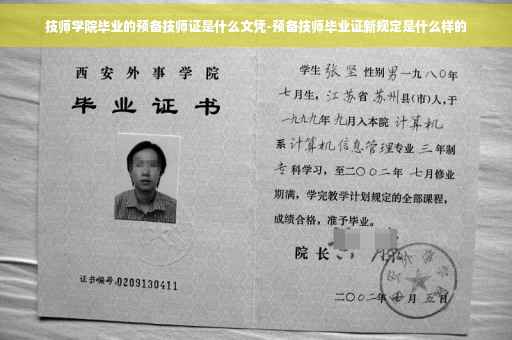 技师学院毕业的预备技师证是什么文凭-预备技师毕业证新规定是什么样的
西安外事学院
毕业证书
证书编号:0209130411
学生 张坚 性别男一九八〇年
七月生,江苏省苏州县(市)人,于
一九九九年九月入本院 计算机
系计算机信息管理专业 三 年制
专科学习,至二〇〇二年 七月修业
期满,学完教学计划规定的全部课程,
成绩合格,准予毕业。
院长
二〇〇二年 月五日